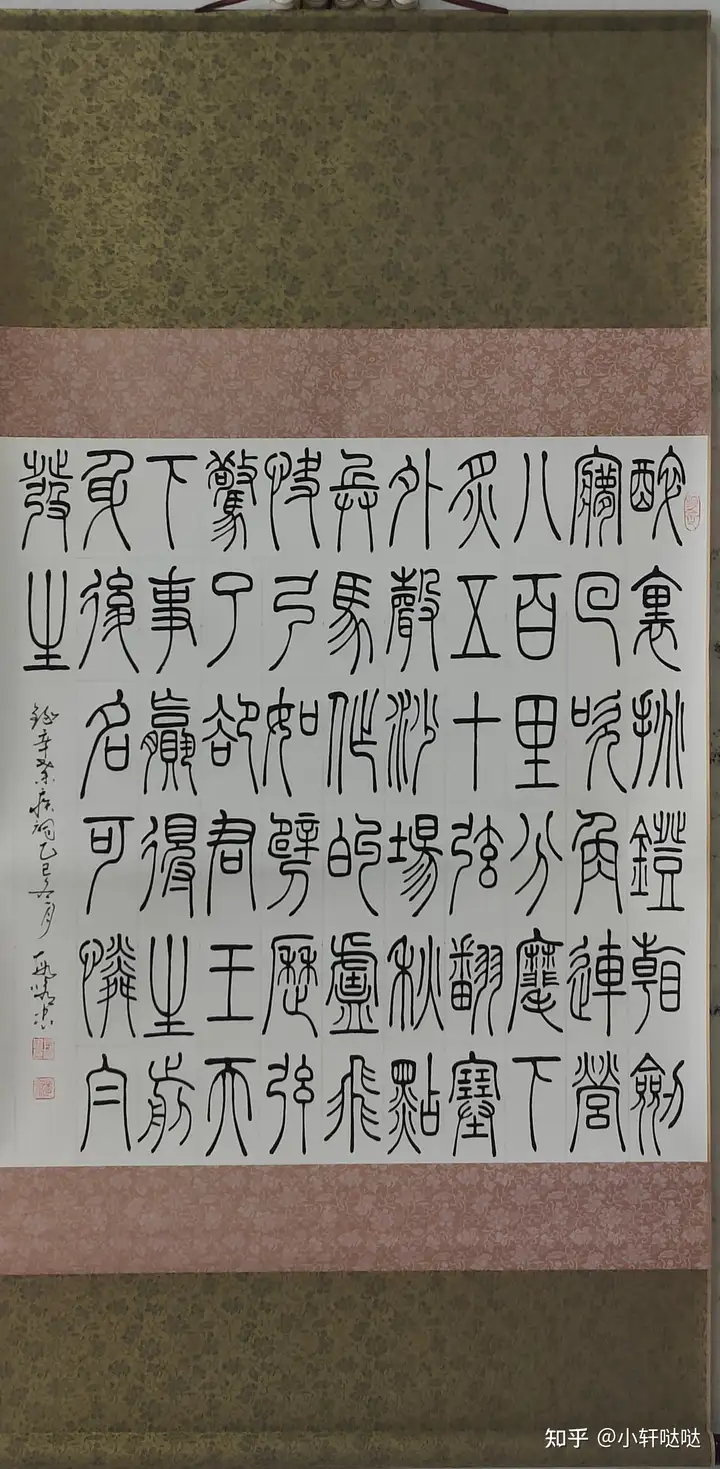 醉裏挑鐙看劍
夢回吹角連營
八百里分麾下
炙五十弦翻塞
外聲沙場秋點
兵馬作的盧飛
快弓如劈歷弦
驚了卻君王天
下事贏得生前
身後名可憐白
發生
錄辛棄疾詞乙巳六月
知乎 @小轩哒哒